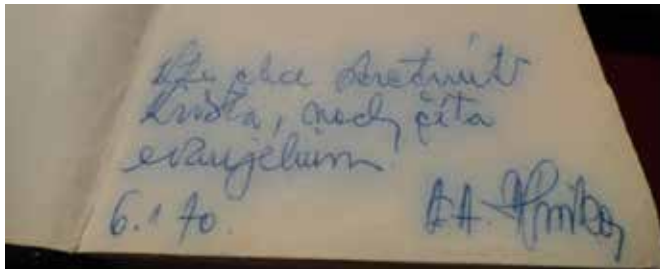 Kto chce stretnúť
Krista, nech číta
evanjelium
6.1.70.